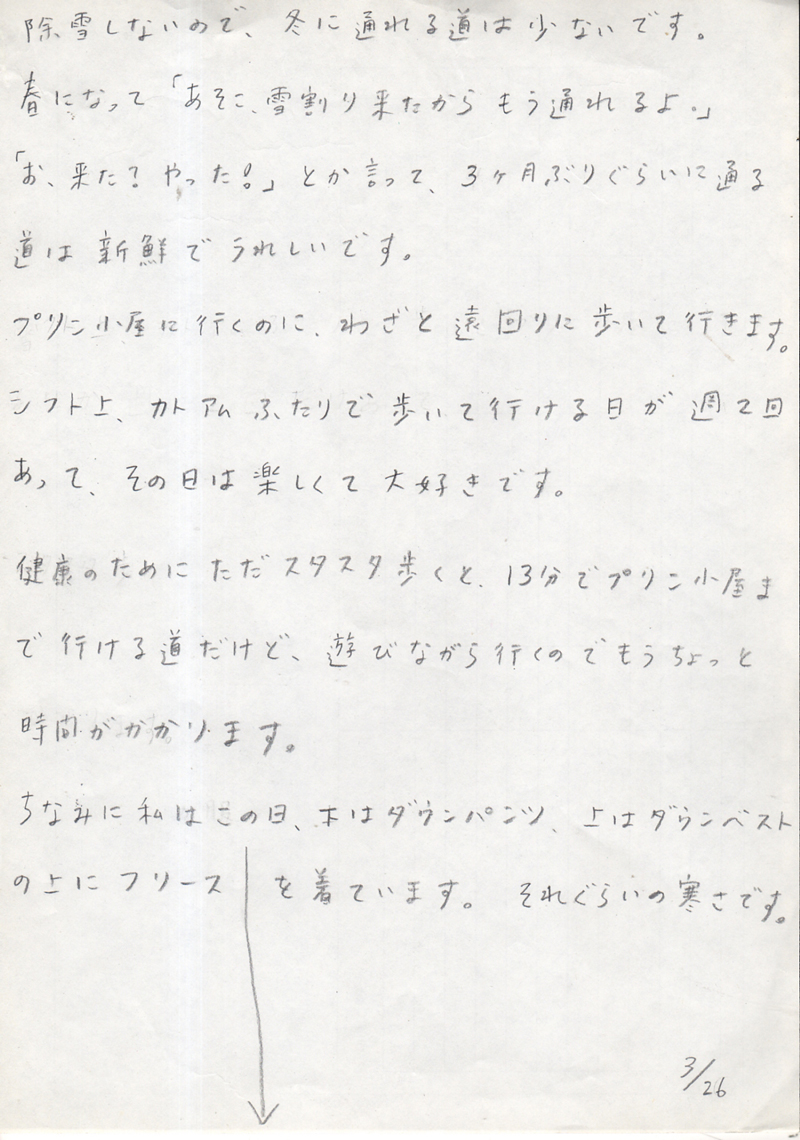 除雪しないので、冬に通れる道は少ないです。
春になって「あそこ、雪割り来たからもう通れるよ。」
「お、来た？やった！」とか言って、3ヶ月ぶりぐらいに通る
道は新鮮でうれしいです。
プリン小屋に行くのに、わざと遠回りに歩いて行きます。
シフト上、カトアムふたりで歩いて行ける日が週2回
あって、その日は楽しくて大好きです。
健康のためにただスタスタ歩くと、13分でプリン小屋ま
で行ける道だけど、遊びながら行くのでもうちょっと
時間がかかります。
ちなみに私はこの日、下はダウンパンツ、上はダウンベスト
の上にフリース を着ています。 それぐらいの寒さです。
3/26